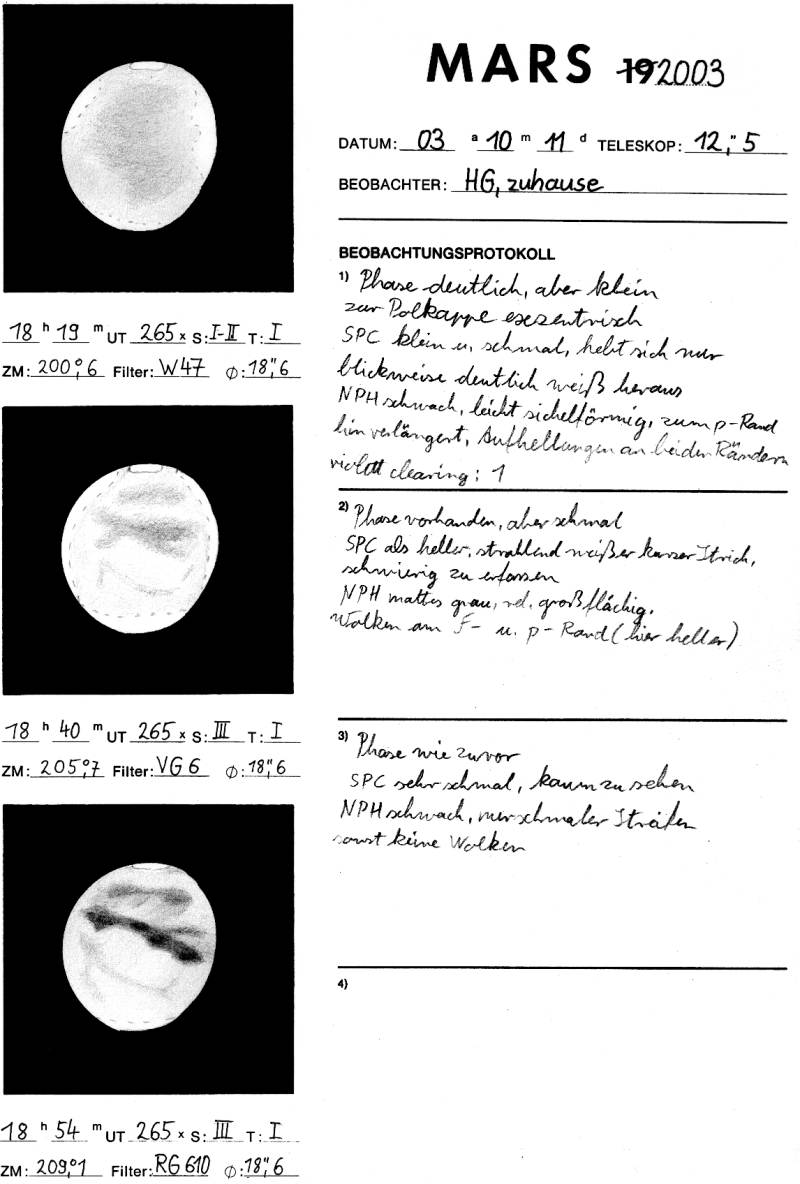 MARS 19 2003
DATUM: 03 a 10 m 11 d TELESKOP: 12,"5
BEOBACHTER: HG, zuhause
BEOBACHTUNGSPROTOKOLL
1) Phase deutlich, aber klein
zur Polkappe exzentrisch
SPC klein u. schmal, hebt sich nur
blickweise deutlich weiß heraus
NPH schwach, leicht sichelförmig, zum p-Rand
hin verlängert, Aufhellungen an beiden Rändern
violett clearing: 1
18 h 19 m UT 265 x S: I-II T: I
ZM: 200°,6 Filter: W47 Ø: 18",6
2) Phase vorhanden, aber schmal
SPC als heller, strahlend weißer kurzer Strich,
schwierig zu erfassen
NPH mattes grau, rel. großflächig.
Wolken am f- u. p-Rand (hier heller)
18 h 40 m UT 265 x S: III T: I
ZM: 205°,7 Filter: VG 6 Ø: 18",6
3) Phase wie zuvor
SPC sehr schmal, kaum zu sehen
NPH schwach, nur schmaler Streifen
sonst keine Wolken
4)
18 h 54 m UT 265 x S: III T: I
ZM: 209,°1 Filter: RG 610 Ø: 18",6